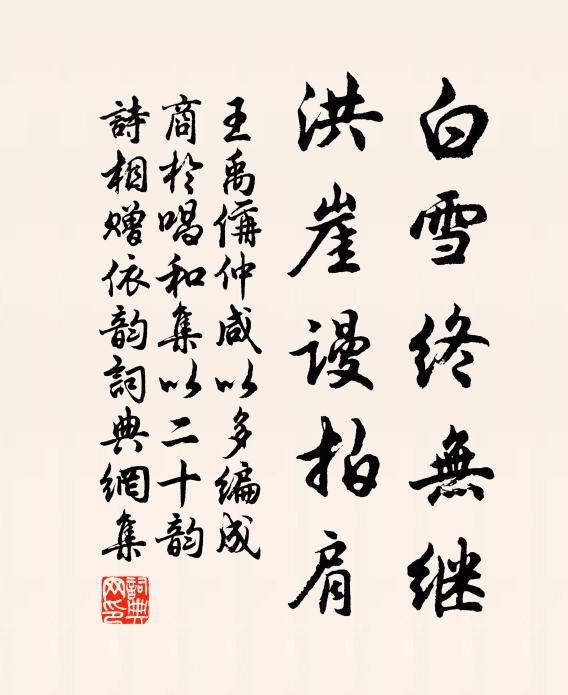 白雪終無継
洪崖謾拍肩
王禹偁仲咸以多編成
商於唱和集以二十韵
詩相赠依韵詞典網集